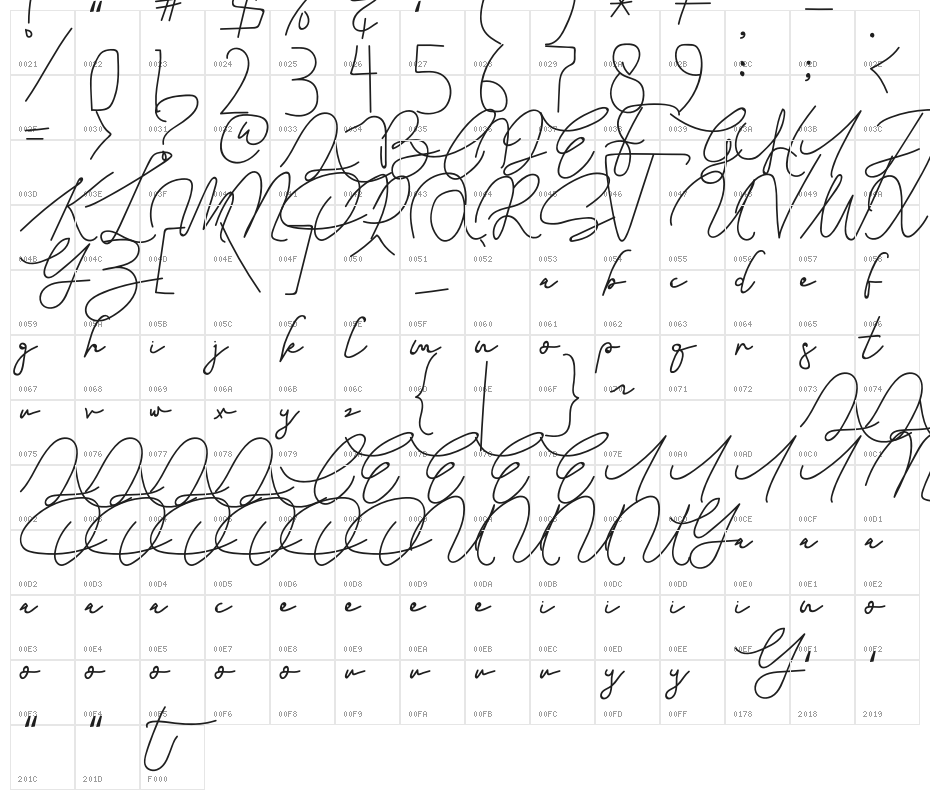 ! " # $ % & ' ( ) * + , - .
0021 0022 0023 0024 0025 0026 0027 0028 0029 002A 002B 002C 002D 002E
/ 0 1 2 3 4 5 6 7 8 9 : ; <
002F 0030 0031 0032 0033 0034 0035 0036 0037 0038 0039 003A 003B 003C
= > ? @ A B C D E F G H I J
003D 003E 003F 0040 0041 0042 0043 0044 0045 0046 0047 0048 0049 004A
K L M N O P Q R S T U V W X
004B 004C 004D 004E 004F 0050 0051 0052 0053 0054 0055 0056 0057 0058
Y Z [ \ ] ^ _ ` a b c d e f
0059 005A 005B 005C 005D 005E 005F 0060 0061 0062 0063 0064 0065 0066
g h i j k l m n o p q r s t
0067 0068 0069 006A 006B 006C 006D 006E 006F 0070 0071 0072 0073 0074
u v w x y z { | } ~ A A
0075 0076 0077 0078 0079 007A 007B 007C 007D 007E 00A0 00AD 00C0 00C1
A A A A C E E E E I I I I N
00C2 00C3 00C4 00C5 00C7 00C8 00C9 00CA 00CB 00CC 00CD 00CE 00CF 00D1
O O O O O O U U U U Y a a a
00D2 00D3 00D4 00D5 00D6 00D8 00D9 00DA 00DB 00DC 00DD 00E0 00E1 00E2
a a a c e e e e i i i i n o
00E3 00E4 00E5 00E7 00E8 00E9 00EA 00EB 00EC 00ED 00EE 00EF 00F1 00F2
o o o o o u u u u y y Y ' '
00F3 00F4 00F5 00F6 00F8 00F9 00FA 00FB 00FC 00FD 00FF 0178 2018 2019
" " t
201C 201D F000